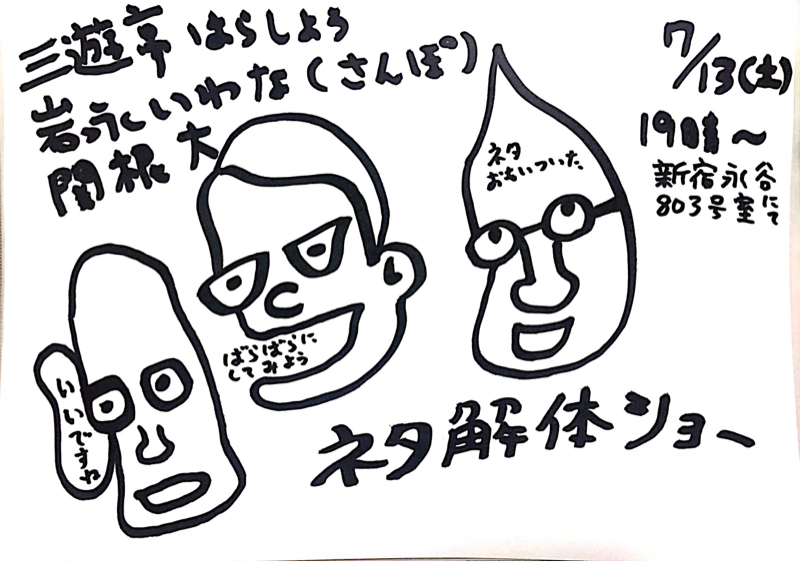 三遊亭はらしょう
岩永いわな(さんぽ)
関根大
7/13(土)
19時〜
新宿永谷
803号室にて
ネタ
おもいついた
ばらばらに
してみよう
いいですね
ネタ解体ショー